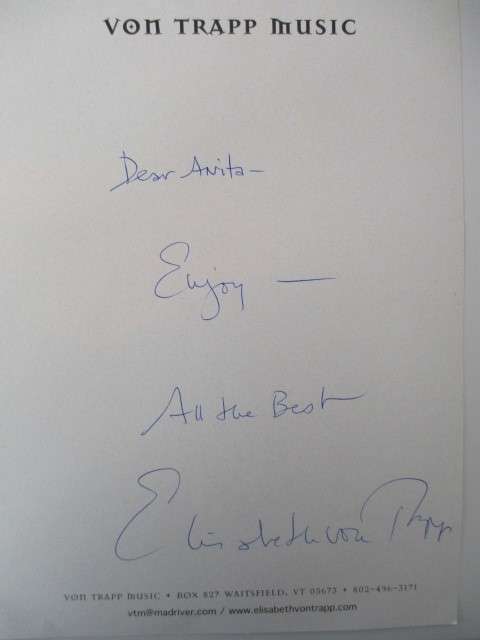 VON TRAPP MUSIC
Dear Anita-
Enjoy —
All the Best
Elisabeth von Trapp
VON TRAPP MUSIC • BOX 827 WAITSFIELD, VT 05673 • 802-496-3171
vtm@madriver.com / www.elisabethvontrapp.com